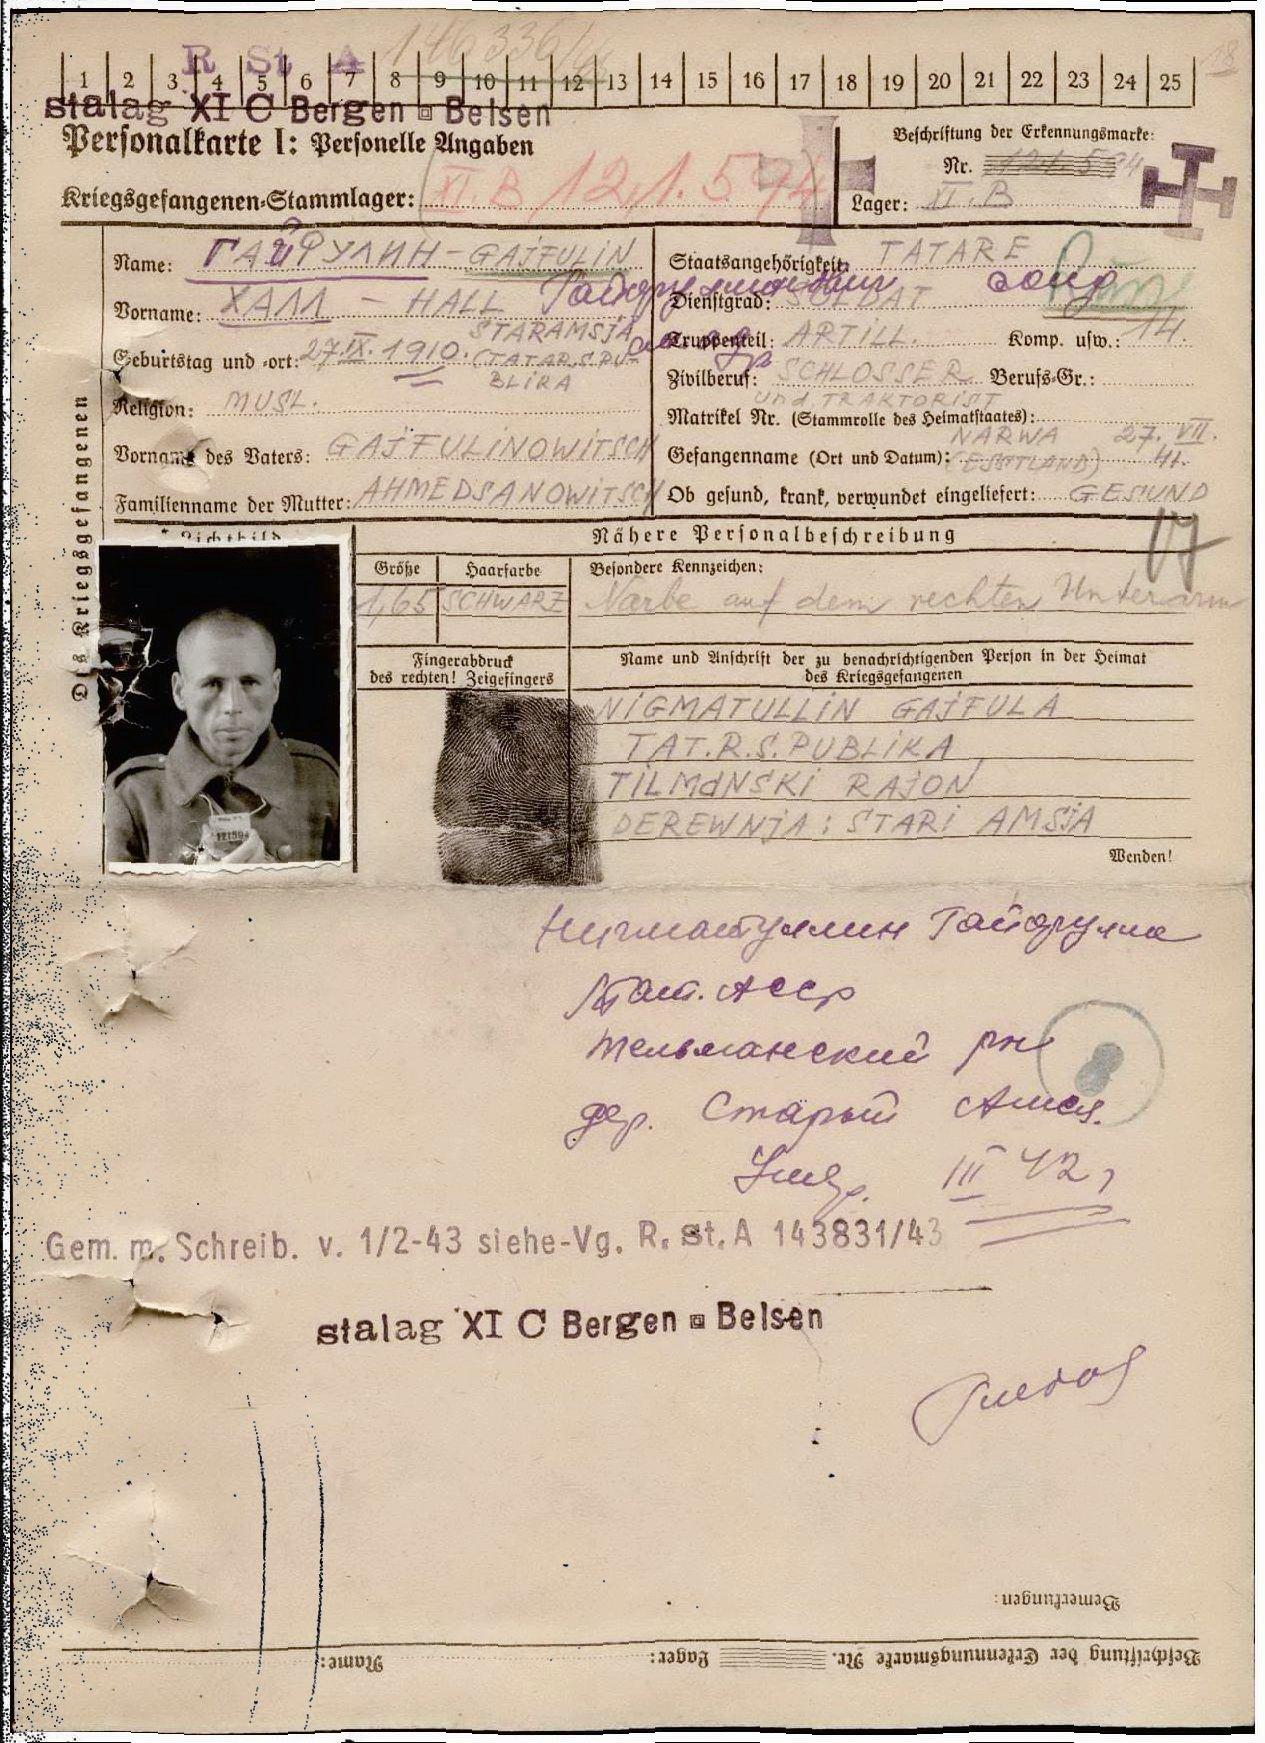 R St A 146336/
1 2 3 4 5 6 7 8 9 10 11 12 13 14 15 16 17 18 19 20 21 22 23 24 25
18
stalag XI C Bergen Belsen
Personalkarte I: Personelle Angaben
Beschriftung der Erkennungsmarke:
Nr. 121.594
Kriegsgefangenen-Stammlager: XI.B 121.594
Lager: XI.B
Name: ГАЙФУЛИН - GAJFULIN
Staatsangehörigkeit: TATARE
Vorname: ХАЛЛ - HALL
Dienstgrad: SOLDAT
солд
Geburtstag und -ort: 27.IX.1910. STARAMSJA (TATAR.S.PU-BLIKA
Truppenteil: ARTILL. Komp. usw.: 14.
Zivilberuf: SCHLOSSER und TRAKTORIST Berufs-Gr.:
Religion: MUSL.
Matrikel Nr. (Stammrolle des Heimatstaates):
Vorname des Vaters: GAJFULINOWITSCH
Gefangenname (Ort und Datum): NARWA (ESSTLAND) 27. VII. 41.
Familienname der Mutter: AHMEDSANOWITSCH
Ob gesund, krank, verwundet eingeliefert: GESUND
Des Kriegsgefangenen
Lichtbild
Nähere Personalbeschreibung
Größe Haarfarbe Besondere Kennzeichen:
1,65 SCHWARZ Narbe auf dem rechten Unterarm
Fingerabdruck
des rechten! Zeigefingers
Name und Anschrift der zu benachrichtigenden Person in der Heimat
des Kriegsgefangenen
NIGMATULLIN GAJFULA
TAT.R.S.PUBLIKA
TILMANSKI RAJON
DEREWNJA: STARI AMSJA
121594
Wenden!
Нигматуллин Гайфулла
Тат. АССР
Тельманский рн
дер. Старый Амся.
Умер. III 42,
Gem. m. Schreib. v. 1/2-43 siehe-Vg. R. St. A 143831/43
stalag XI C Bergen Belsen
Bemerkungen:
Beschriftung der Erkennungsmarke Nr. Lager: Name: